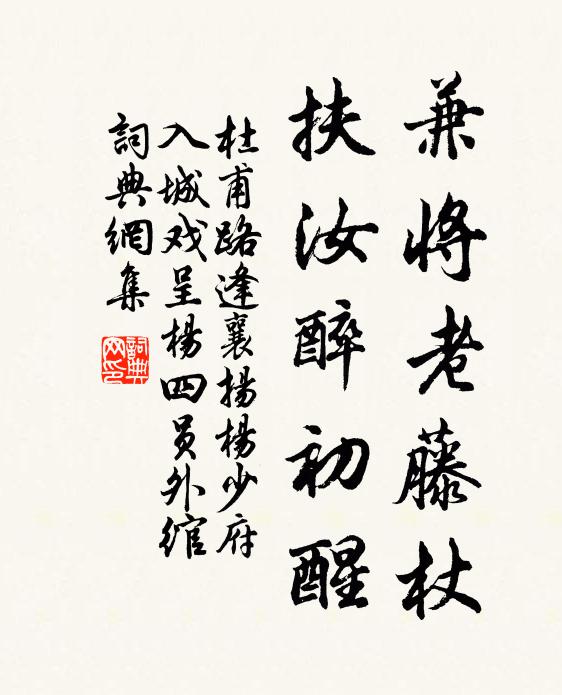 兼將老藤杖
扶汝醉初醒
杜甫路逢襄揚楊少府
入城戏呈楊四员外绾
詞典網集
詞典網印